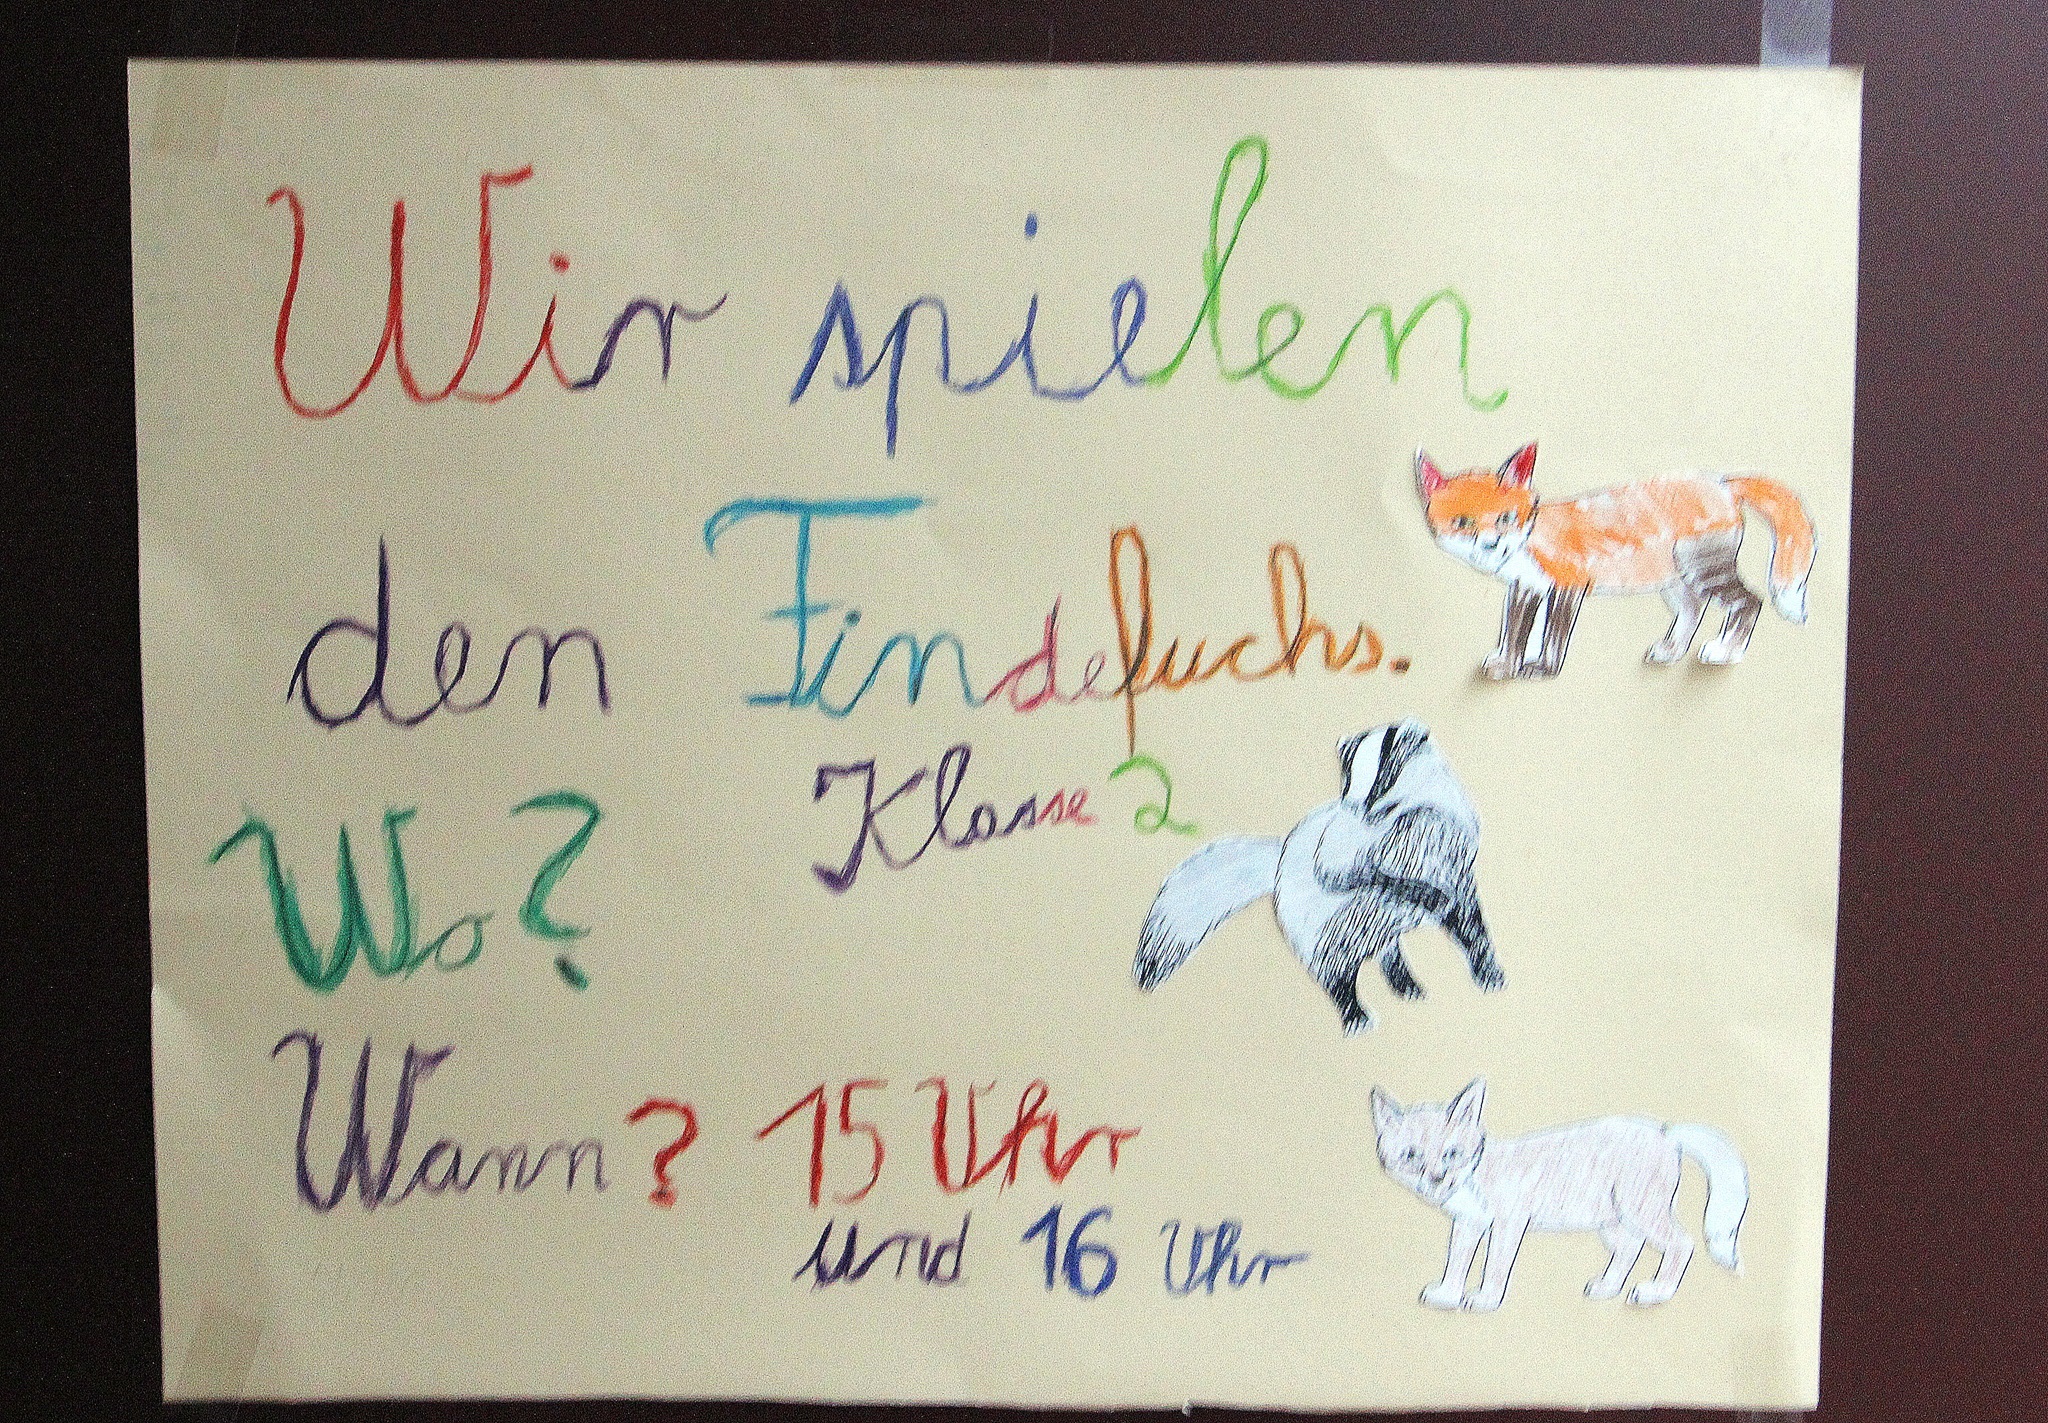 Wir spielen
den Findefuchs.
Klasse 2
Wo?
Wann? 15 Uhr
und 16 Uhr